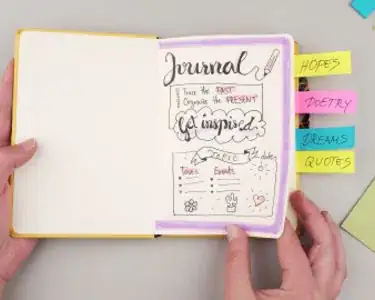 Journal
Trace the PAST
Organize the PRESENT
Get inspired
TOPIC
Dates
Times Events
HOPES
POETRY
DREAMS
QUOTES